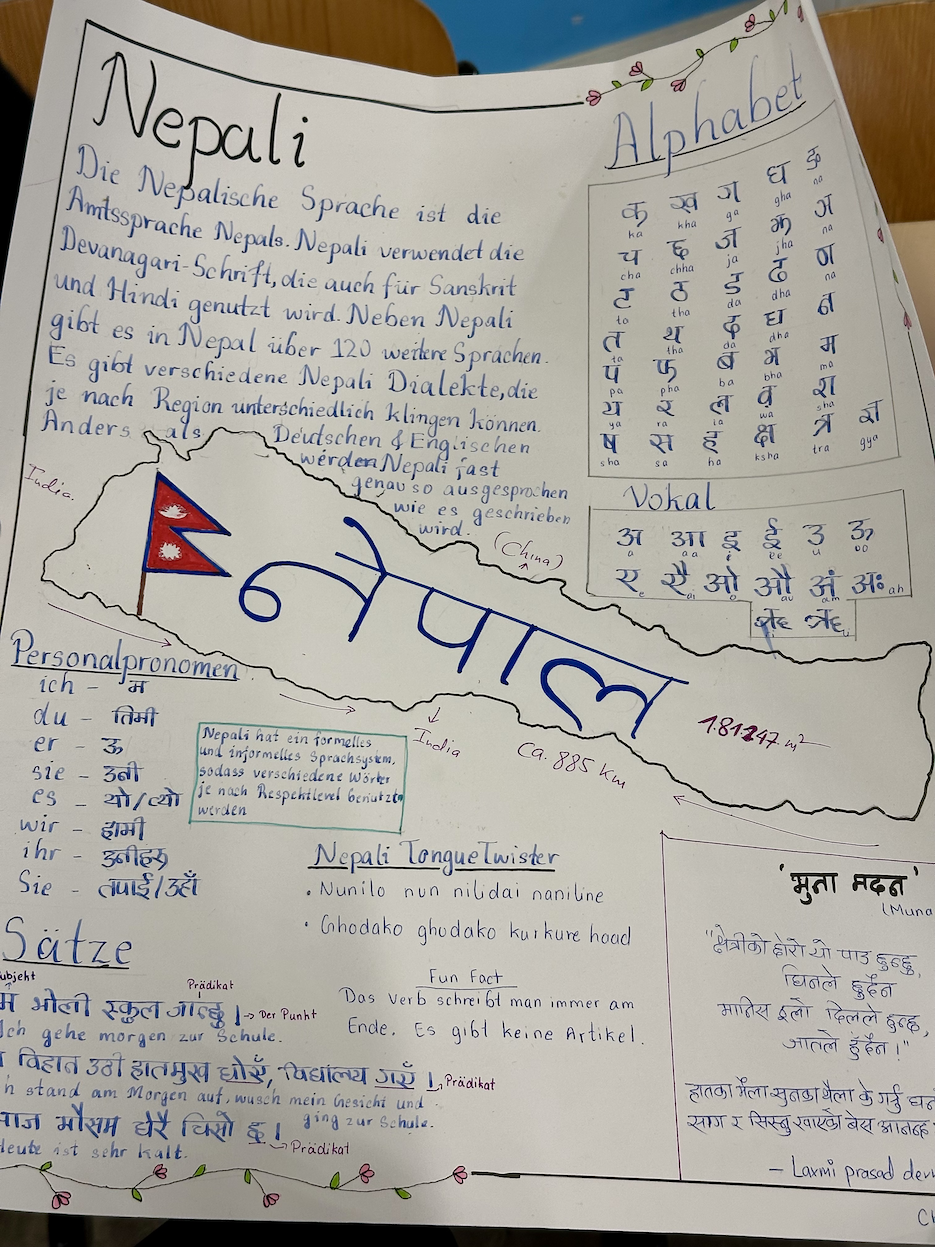 Nepali
Die Nepalische Sprache ist die
Amtssprache Nepals. Nepali verwendet die
Devanagari-Schrift, die auch für Sanskrit
und Hindi genutzt wird. Neben Nepali
gibt es in Nepal über 120 weitere Sprachen.
Es gibt verschiedene Nepali Dialekte, die
je nach Region unterschiedlich klingen können.
Anders als Deutschen & Englischen
werden Nepali fast
genau so ausgesprochen
wie es geschrieben
wird.
Alphabet
क ख ग घ ङ
ka kha ga gha na
च छ ज झ ञ
cha chha ja jha na
ट ठ ड ढ ण
ta tha da dha na
त थ द ध न
ta tha da dha
प फ ब भ म
pa pha ba bha ma
य र ल व श
ya ra la wa sha
ष स ह क्ष त्र ज्ञ
sha sa ha ksha tra gya
Vokal
अ आ इ ई उ ऊ
a aa i ee u oo
ए ऐ ओ औ अं अः
e ai o au am ah
India
(China)
नेपाल
India
Ca. 885 km
Personalpronomen
ich - म
du - तिमी
er - ऊ
sie - उनी
es - यो/त्यो
wir - हामी
ihr - उनीहरू
Sie - तपाई/उहाँ
Nepali hat ein formelles
und informelles Sprachsystem,
sodass verschiedene Wörter
je nach Respektlevel benutzt
werden
Nepali TongueTwister
• Nunilo nun nilidai naniline
• Ghodako ghodako kurkure hoad
Fun Fact
Das Verb schreibt man immer am
Ende. Es gibt keine Artikel.
Sätze
Prädikat
म भोली स्कुल जान्छु । → Der Punkt
Ich gehe morgen zur Schule.
विहात उठी हातमुख धोएँ, विद्यालय गएँ । Prädikat
stand am Morgen auf, wusch mein Gesicht und
ging zur Schule.
मौसम धेरै चिसो छ । → Prädikat
Heute ist sehr kalt.
'मुना मदन'
(Muna
"क्षेत्रीको छोरो यो पाउ छुन्छु,
घिनले छुदैन
मानिस ठूलो दिलले हुन्छ,
जातले हुँदैन !"
हातका मैला सुनका थैला के गर्नु
साग र सिस्नु खाएको बेस आनन्द
- Laxmi prasad